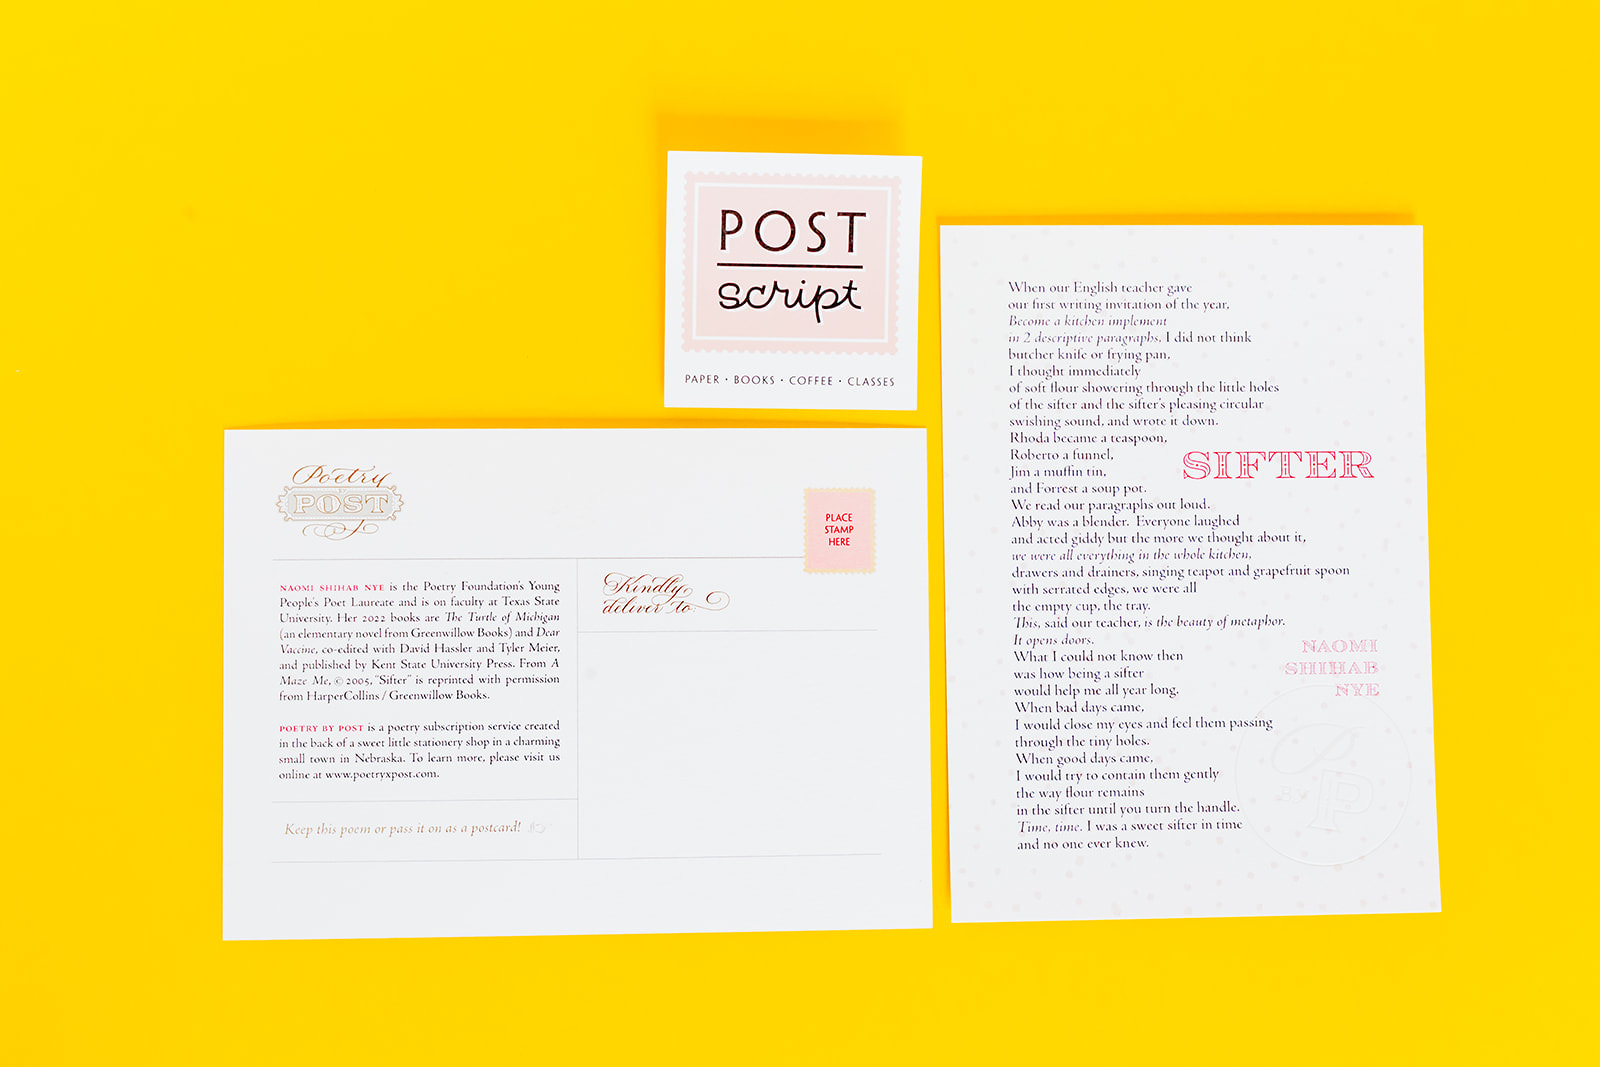 POST
script
PAPER • BOOKS • COFFEE • CLASSES
Poetry
BY
POST
PLACE
STAMP
HERE
NAOMI SHIHAB NYE is the Poetry Foundation's Young
People's Poet Laureate and is on faculty at Texas State
University. Her 2022 books are The Turtle of Michigan
(an elementary novel from Greenwillow Books) and Dear
Vaccine, co-edited with David Hassler and Tyler Meier,
and published by Kent State University Press. From A
Maze Me, © 2005, "Sifter" is reprinted with permission
from HarperCollins / Greenwillow Books.
POETRY BY POST is a poetry subscription service created
in the back of a sweet little stationery shop in a charming
small town in Nebraska. To learn more, please visit us
online at www.poetryxpost.com.
Keep this poem or pass it on as a postcard!
Kindly
deliver to
When our English teacher gave
our first writing invitation of the year,
Become a kitchen implement
in 2 descriptive paragraphs, I did not think
butcher knife or frying pan,
I thought immediately
of soft flour showering through the little holes
of the sifter and the sifter's pleasing circular
swishing sound, and wrote it down.
Rhoda became a teaspoon,
Roberto a funnel,
Jim a muffin tin,
and Forrest a soup pot.
We read our paragraphs out loud.
Abby was a blender. Everyone laughed
and acted giddy but the more we thought about it,
we were all everything in the whole kitchen,
drawers and drainers, singing teapot and grapefruit spoon
with serrated edges, we were all
the empty cup, the tray.
This, said our teacher, is the beauty of metaphor.
It opens doors.
What I could not know then
was how being a sifter
would help me all year long.
When bad days came,
I would close my eyes and feel them passing
through the tiny holes.
When good days came,
I would try to contain them gently
the way flour remains
in the sifter until you turn the handle.
Time, time. I was a sweet sifter in time
and no one ever knew.
SIFTER
NAOMI
SHIHAB
NYE
P
BY
P